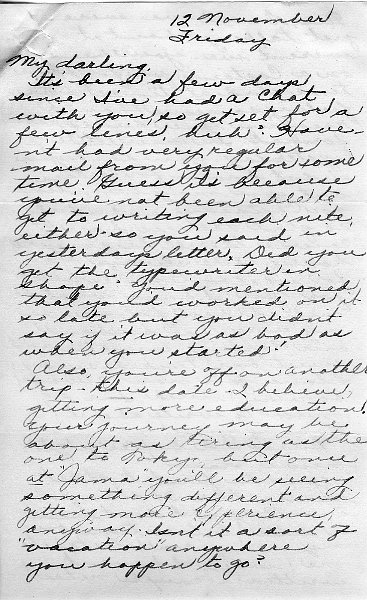 12 November
Friday
My darling,
It's been a few days
since I've had a chat
with you, so get set for a
few lines, huh? Have-
n't had very regular
mail from you for some
time. Guess it's because
you've not been able to
get to writing each nite
either - so you said in
yesterdays letter. Did you
get the typewriter in
shape? You'd mentioned
that you'd worked on it
so late but you didn't
say if it was as bad as
when you started!
Also, you're off on another
trip - this date I believe,
getting more education.
Your journey may be
about as tiring as the
one to Tokyo, but once
at "Jama" you'll be seeing
something different and
getting more experience,
anyway. Isn't it a sort of
"vacation" anywhere
you happen to go?